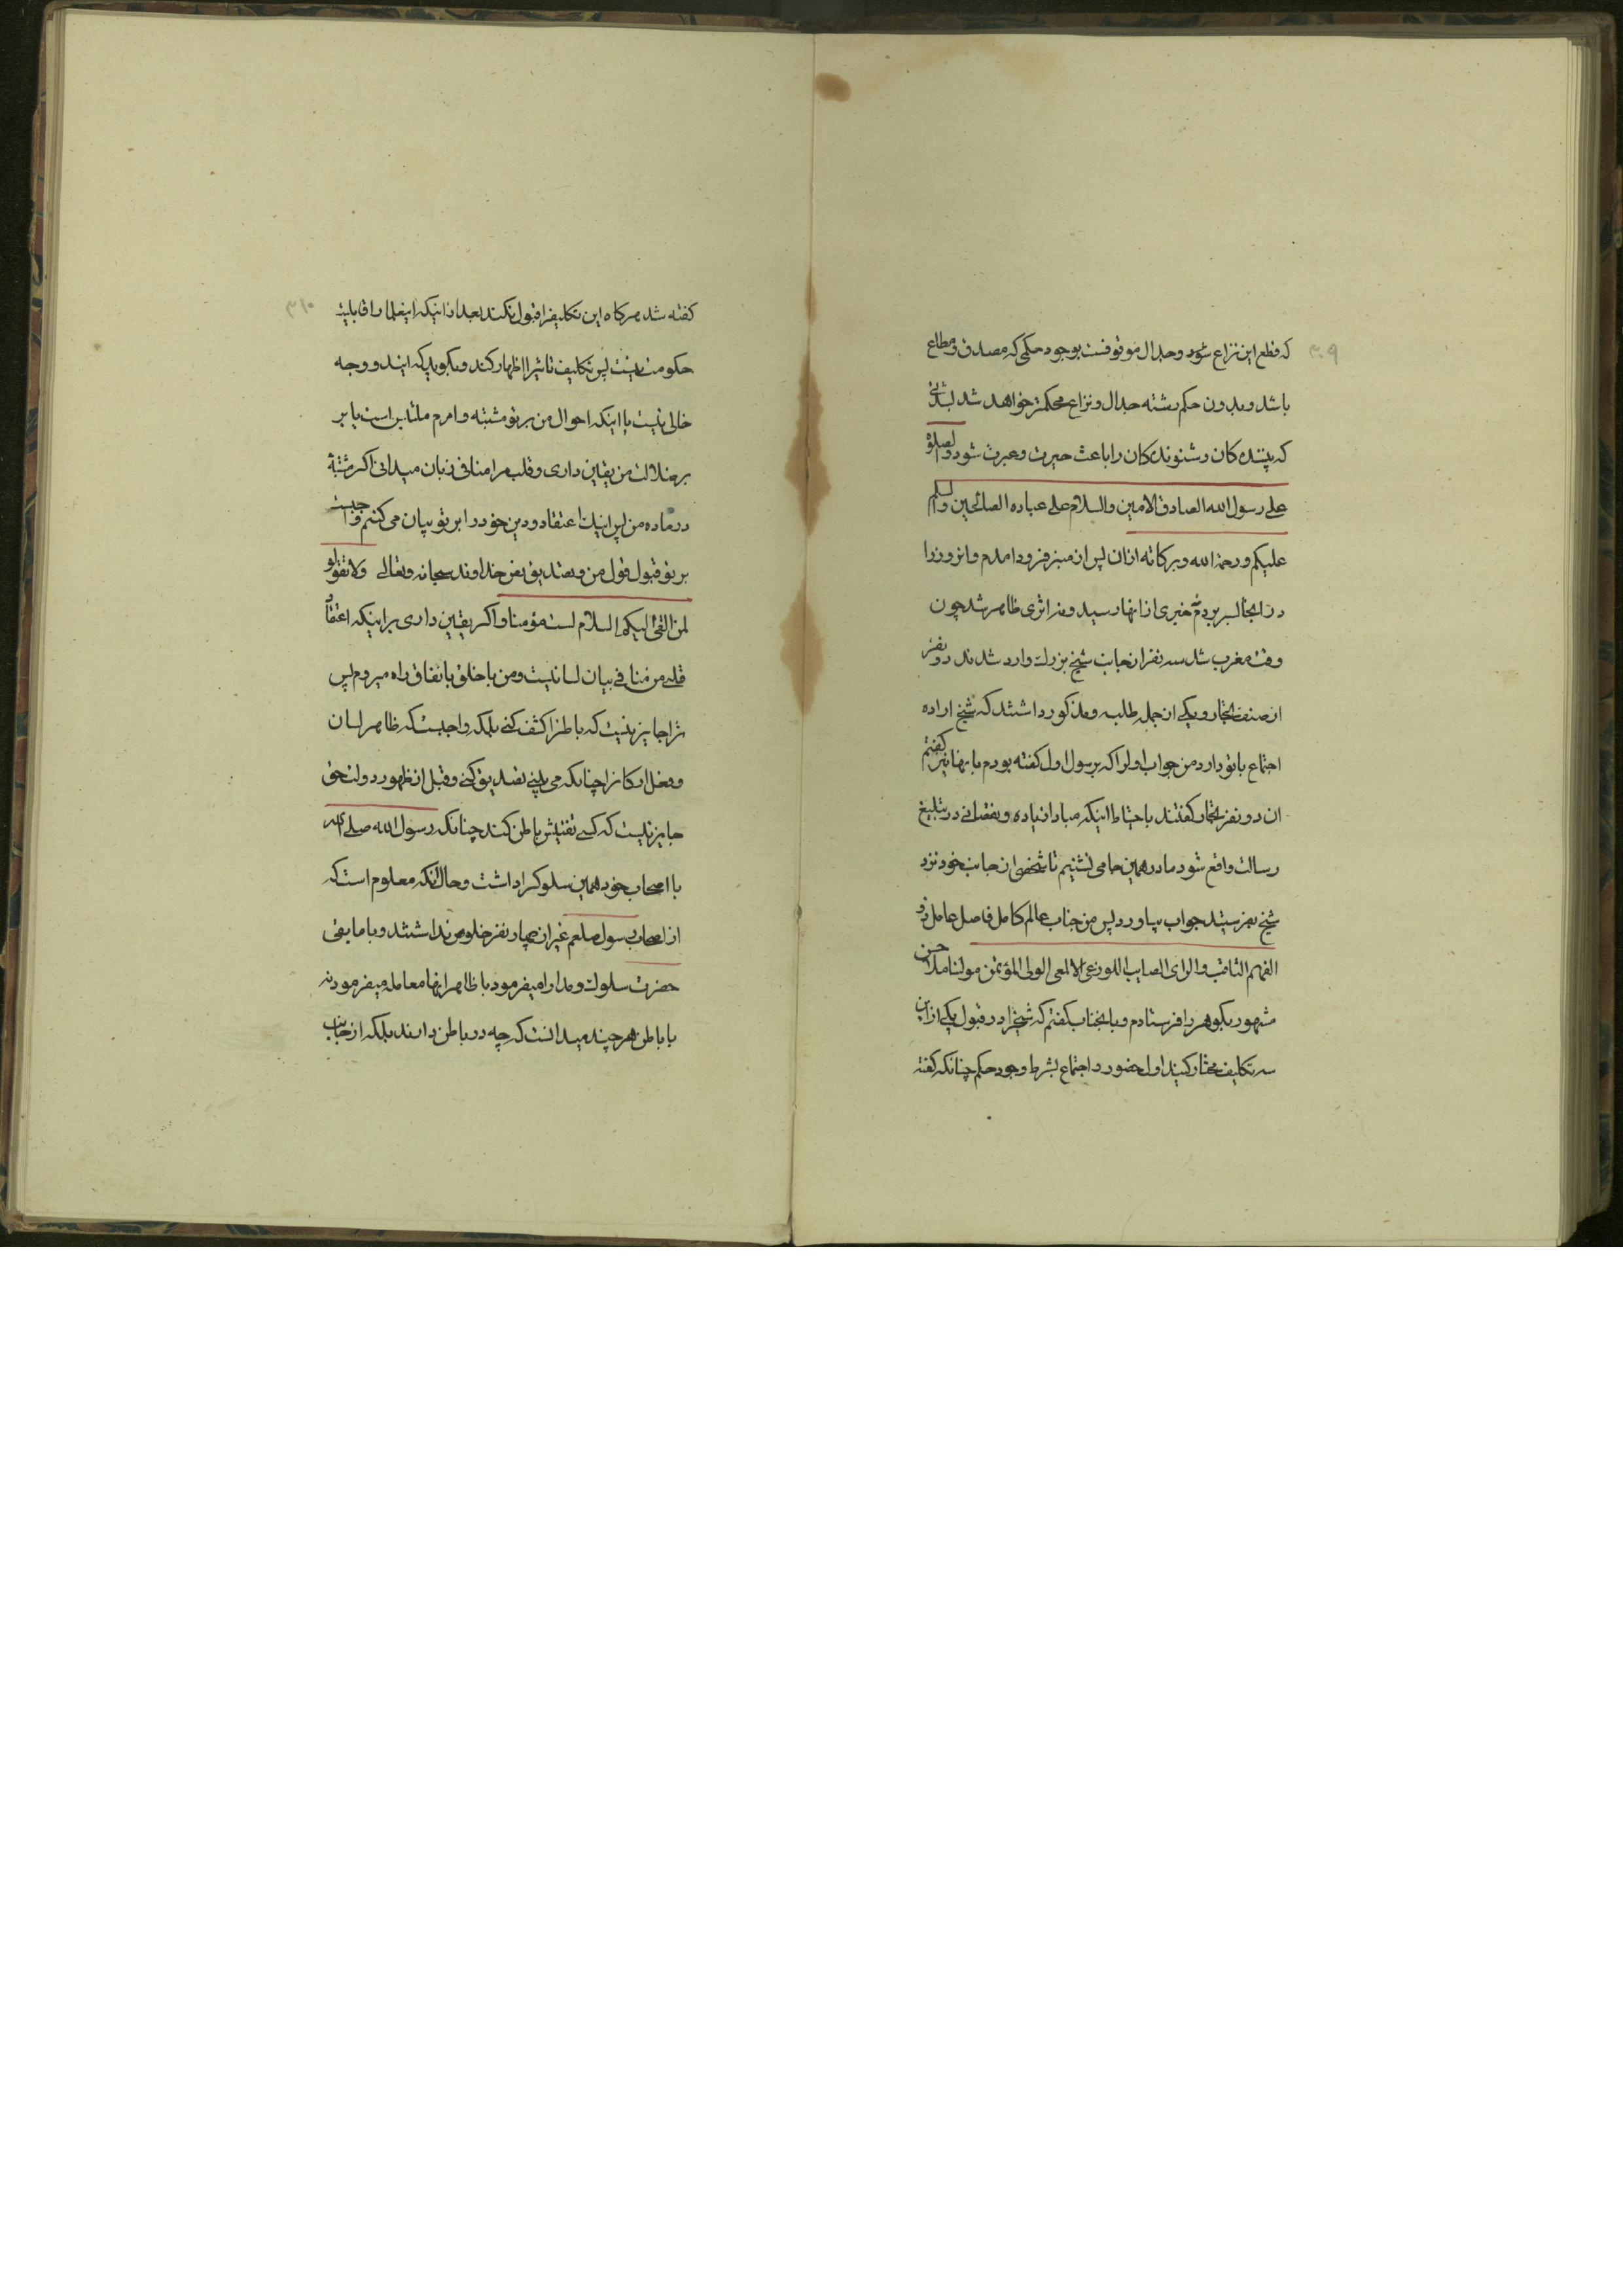 ۳۰۹
که قطع این نزاع شود و جدال موقوفست بوجود حکمی که مصدق و مطاع
باشد و بدون حکم رشته جدال و نزاع محکمتر خواهد شد بشدتی
که بیننده کان و شنونده کان را باعث حیرت و عبرت شود والصلوة
علی رسول الله الصادق الامین والسلام علی عباده الصالحین والسلم
علیکم ورحمة الله وبرکاته ازان پس از منبر فرود امدم و انروز را
در انجا بسر بردم نه خبری از انها رسید و نه اثری ظاهر شد چون
وقت مغرب شد سه نفر از جانب شیخ بزرك وارد شدند دو نفر
از صنف تجار و یکی از جمله طلبه و مذکور داشتند که شیخ اراده
اجتماع با تو دارد من جواب اول را که برسول اول گفته بودم بانها نیز کفتم
ان دو نفر تجار کفتند باحتیاط اینکه مبادا زیاده و نقصانی در تبلیغ
رسالت واقع شود ما در همین جا می نشینیم تا شخصی از جانب خود نزد
شیخ بفرستید جواب بیاورد پس من جناب عالم کامل فاضل عامل ذو
الفهم الثاقب والرای الصایب اللوزعی الالمعی الولی المؤتمن مولنا ملا حسن
مشهور بکوهر را فرستادم و بانجناب کفتم که شیخ را در قبول یکی از این
سه تکلیف مختار کنید اول حضور و اجتماع بشرط وجود حکم چنانکه کفته
۳۱۰
کفته شد هرکاه این تکلیف را قبول نکند بعد از اینکه اینعلما را قابلیت
حکومت نیست پس تکلیف ثانی را اظهار کند و بکوید که ایند و وجه
خالی نیست یا اینکه احوال من بر تو مشتبه و امرم ملتبس است یا بر
بر ضلالت من یقین داری و قلب مرا منافی زبان میدانی اکر مشتبهٔ
در ماده من پس اینك اعتقاد و دین خود را بر تو بیان می کنم و واجبست
بر تو قبول قول من و تصدیق بفرض خداوند سبحانه وتعالی ولا تقولو
لمن القی الیکم السلام لست مؤمنا و اکر یقین داری بر اینکه اعتقاد
قلبی من منافی بیان لسانیست و من با خلق بانفاق راه میروم پس
ترا جایز نیست که باطنرا کشف کنی بلکه واجبست که ظاهر لسان
و فعل ارکانرا چنانکه می بینی تصدیق کنی و قبل از ظهور دولت حق
جایز نیست که کسی تفتیش باطن کند چنانکه رسول الله صلی الله
با اصحاب خود همین سلوکرا داشت و حال آنکه معلوم است که
از اصحاب رسول صلعم غیر از چهار نفر خلوص نداشتند و با مابقی
حضرت سلوك و مدارا میفرمود با ظاهر انها معامله میفرمود نه
با باطن هر چند میدانست که چه در باطن دارند بلکه از جانب